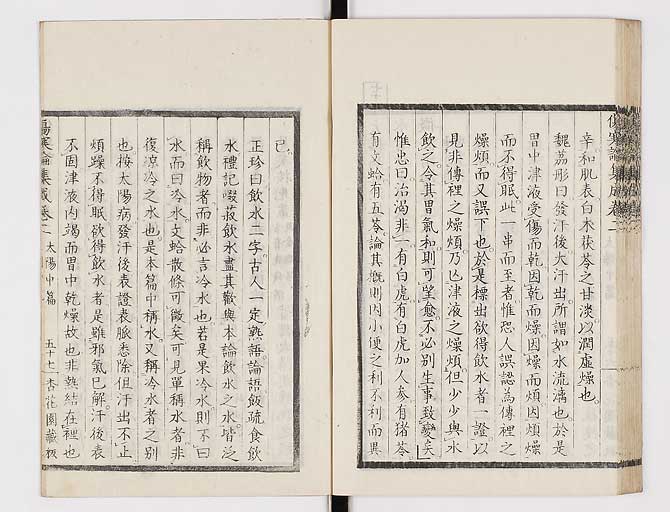 辛和肌表白朮茯苓之甘淡以潤虛燥也
魏荔彤曰發汗後大汗出所謂如水流漓也於是
胃中津液受傷而乾因乾而燥因燥而煩因煩燥
而不得眠此一串而至者惟恐人誤認為傳裡之
燥煩而又誤下也於是標出欲得飲水者一證以
見非傳裡之燥煩乃亾津液之燥煩但少少與水
飲之令其胃氣和則可望愈不必別生事致變矣
惟忠曰治渴非一有白虎有白虎加人参有猪苓
有文蛤有五苓論其概則因小便之利不利而異
已
正珍曰飲水二字古人一定熟語論語飯疏食飲
水禮記啜菽飲水盡其歡與本論飲水之水皆泛
稱飲物者而非必言冷水也若是果冷水則不曰
水而曰冷水文蛤散條可徵矣可見單稱水者非
復涼冷之水也是本篇中稱水又稱冷水者之別
也按太陽病發汗後表證表脈悉除但汗出不止
煩躁不得眠欲得飲水者是雖邪氣已解汗後表
不固津液内竭而胃中乾燥故也非熱結在裡也
傷寒論集成卷二 太陽中篇 五十七 杏花園藏板